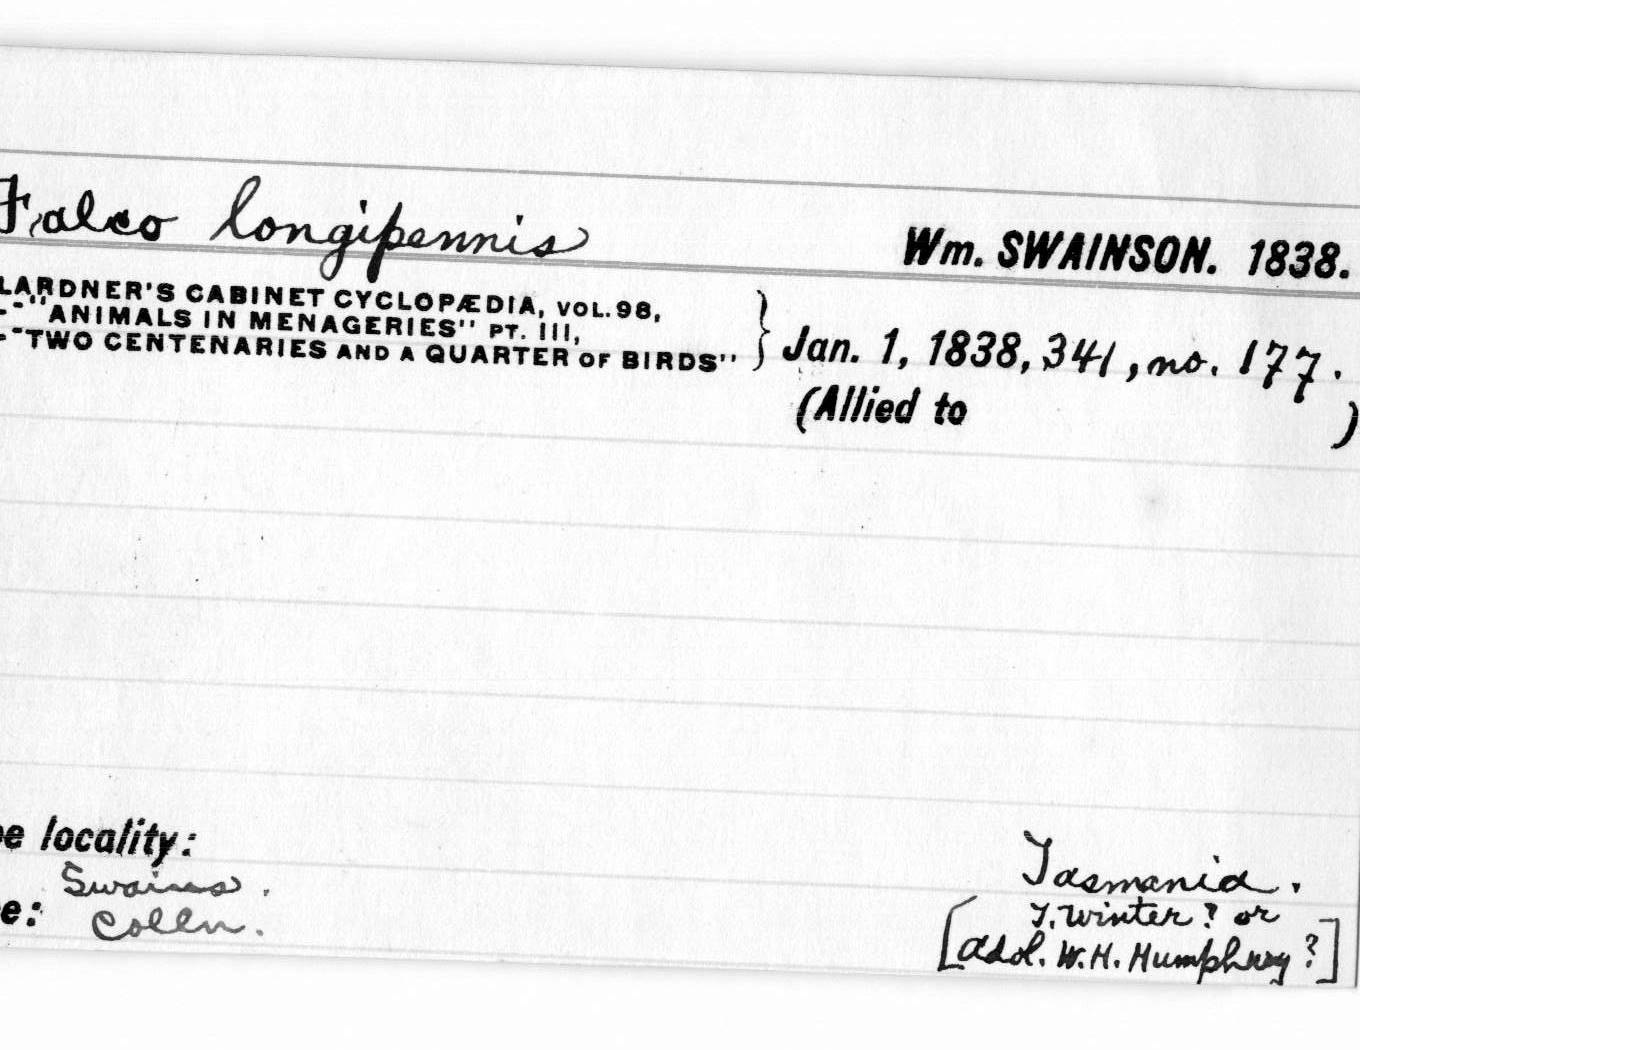 Falco longipennis
Wm. SWAINSON. 1838.
LARDNER'S CABINET CYCLOPÆDIA, VOL. 98,
--"ANIMALS IN MENAGERIES" PT. III,
--"TWO CENTENARIES AND A QUARTER OF BIRDS"
} Jan. 1, 1838, 341, no. 177.
(Allied to )
e locality:
Tasmania.
Swains.
e: Colln.
[ T. Winter? or
Adol. W. H. Humphrey? ]